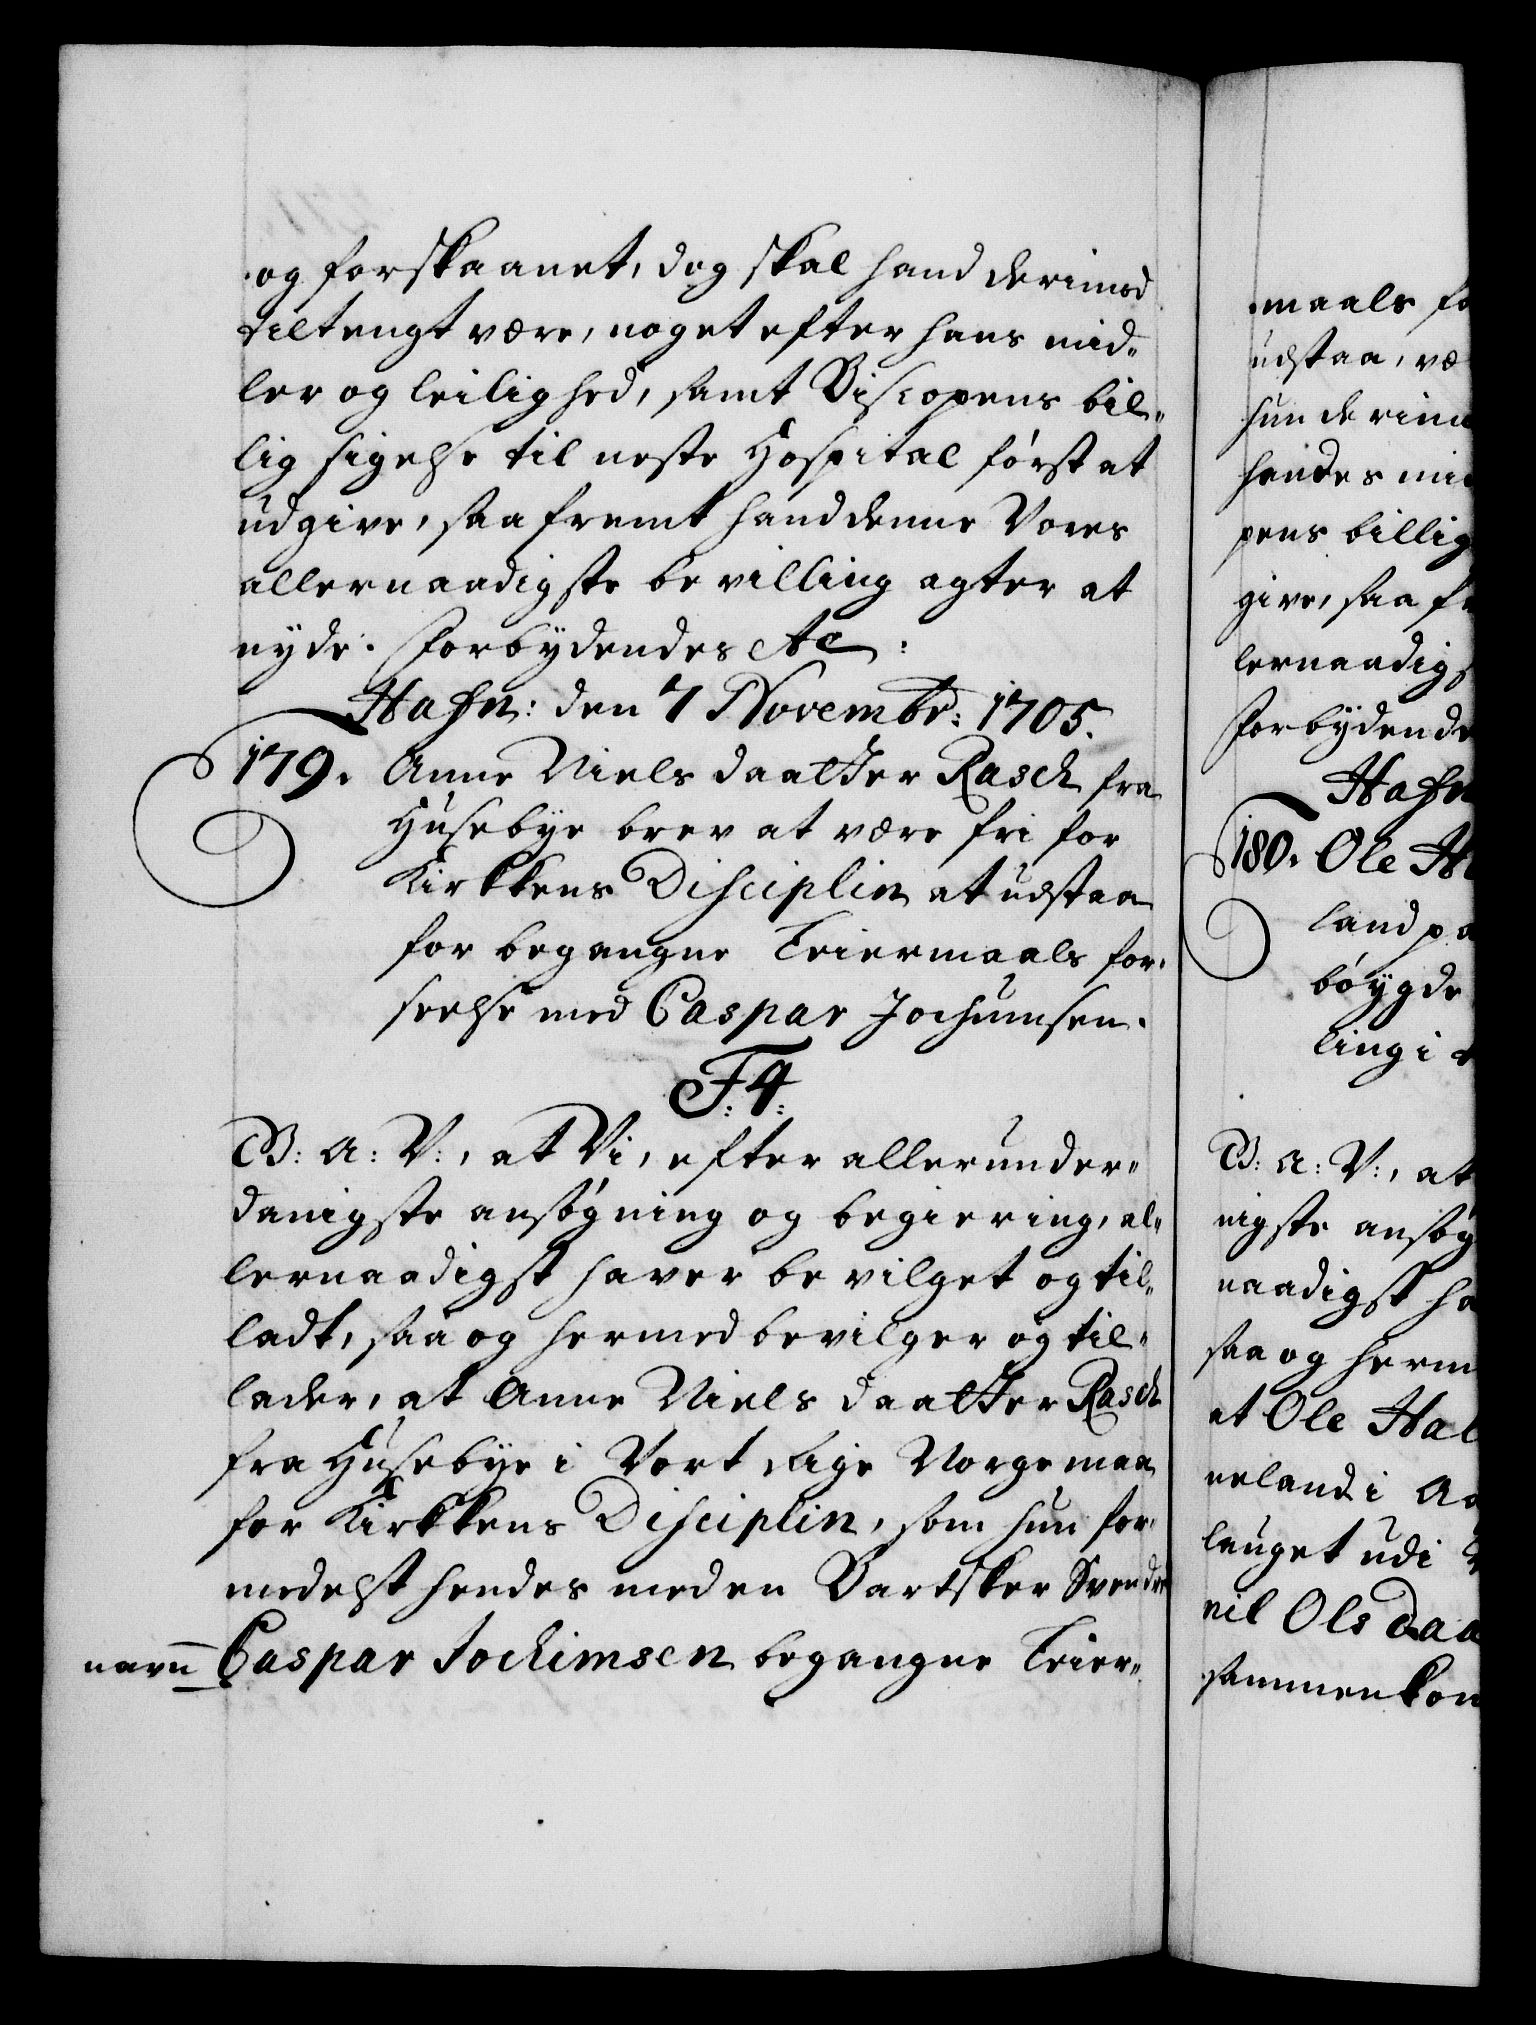 og forskaanet, dog skal hand derimod
tiltengt være, noget efter hans mid„
ler og leilighed, samt Biscopens bil„
lig sigelse til neste Hospital först at
udgive, saafremt hand denne Vores
allernaadigste bevilling agter at
nyde. Forbydendes etc:
Hafn: den 7 Novembr: 1705.
179. Anne Niels daatter Rasch fra
Husebye brev at være fri for
Kirkkens Disciplin at udstaa
for begangne Leiermaals for„
seelse med Caspar Jochumsen.
F: 4:
G: A: V:, at Vi, efter allerunder„
danigste ansögning og begiering, al„
lernaadigst haver bevilget og til„
ladt, saa og hermed bevilger og til„
lader, at Anne Niels daatter Rasch
fra Husebye i Vort Rige Norge maa
for Kirkkens Disciplin, som hun for„
medelst hendes med en Bartsker Svend
navn Caspar Jochimsen begangne Leier„
maals fo
udstaa, væ
hun derim
hendes mi
pens billig
give, saa f
lernaadigs
Forbydende
Hafn
180. Ole H
land pa
böygde
ling i
G: A: V:, at
nigste ansög
naadigst ha
saa og herm
at Ole Hal
neland i Aa
lauget udi
nil Ols daa
sammenkom